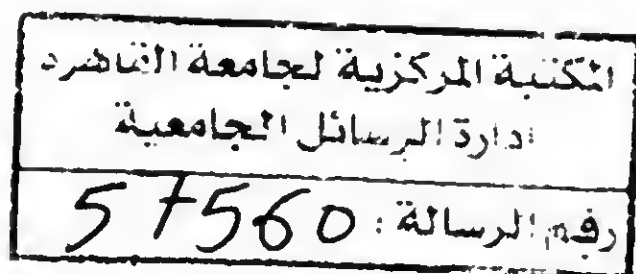 المكتبة المركزية لجامعة القاهرة
ادارة الرسائل الجامعية
رقم الرسالة : 57560